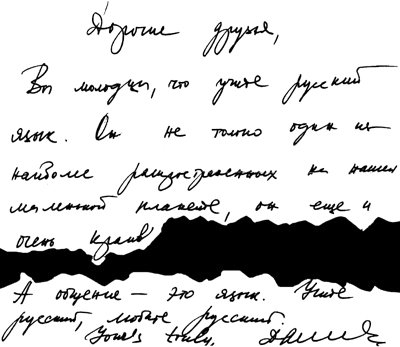 Дорогие друзья,
Вы молодцы, что учите русский
язык. Он не только один из
наиболее распространенных на нашей
маленькой планете, он еще и
очень красив
А общение — это язык. Учите
русский, любите русский.
Yours truly,